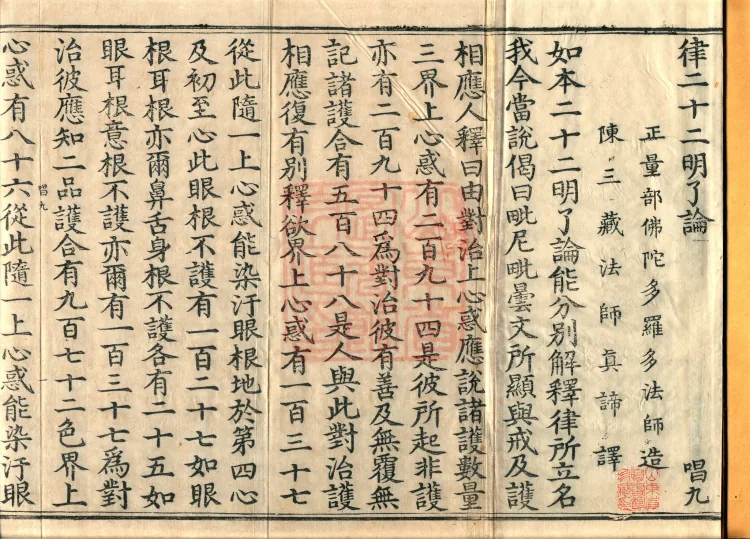 律二十二明了論 唱九
正量部佛陀多羅多法師造
陳三藏法師真諦譯
如本二十二明了論能分別解釋律所立名
我今當說偈曰毗尼毗曇文所顯與戒及護
相應人釋曰由對治上心惑應說諸護數量
三界上心惑有二百九十四是彼所起非護
亦有二百九十四為對治彼有善及無覆無
記諸護合有五百八十八是人與此對治護
相應復有別釋欲界上心惑有一百三十七
從此隨一上心惑能染汙眼根地於第四心
及初至心此眼根不護有一百二十七如眼
根耳根亦爾鼻舌身根不護各有二十五如
眼耳根意根不護亦爾有一百三十七為對
治彼應知二品護合有九百七十二色界上
唱九
心惑有八十六從此隨一上心惑能染汙眼